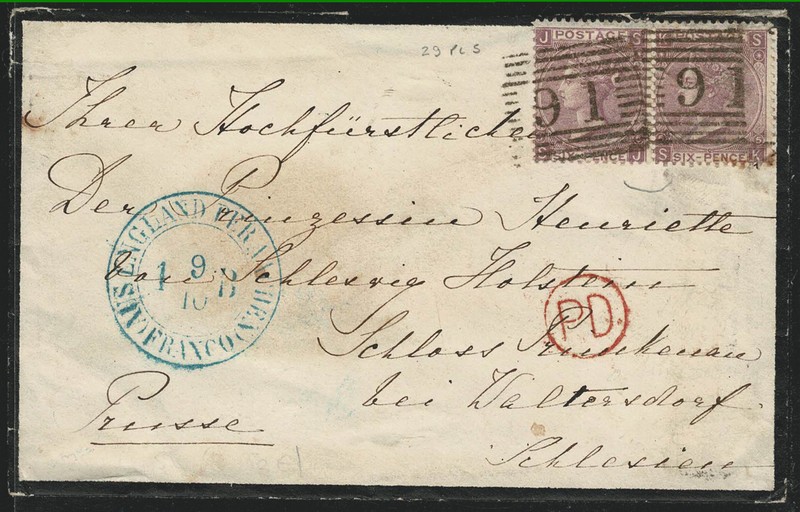 29 PL S
J POSTAGE S
POSTAGE S
91
91
S SIX-PENCE J
S SIX-PENCE
Ihrer Hochfürstlichen
Der Prinzessin Henriette
von Schlesvig Holstein
Schloss Primkenau
bei Waltersdorf
Schlesien
Prusse
ENGLAND PER AACHEN
FRANCO
1 9 B
10
PD